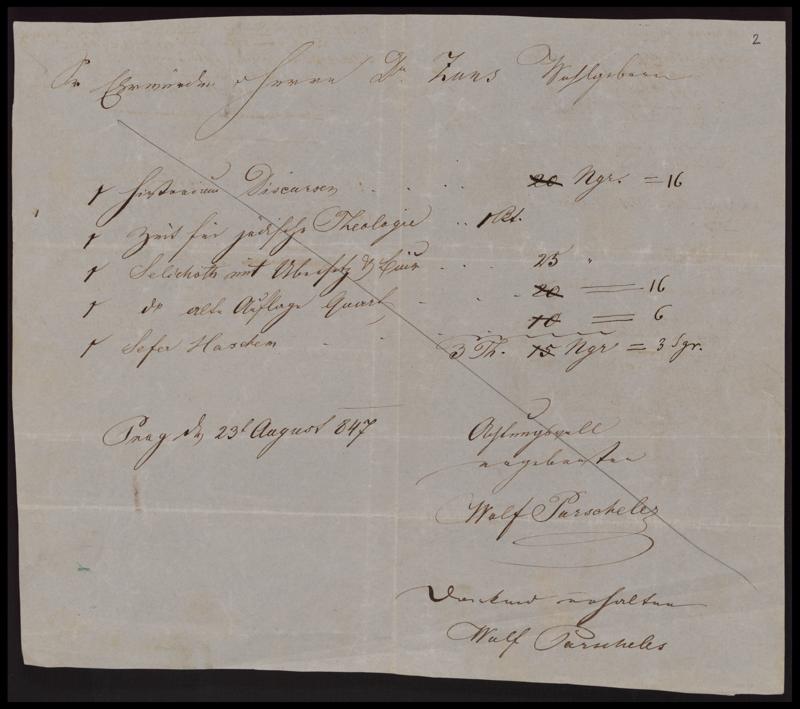 2
Sr Ehrwürden Herrn Dr Zuns Wohlgeboren
1 historium Discursen . . . . 20 Ngr. = 16
1 Zeit für jüdische Theologie . . 1 Rt.
1 Selichoth mit Übersetz . . . 25 "
1 do alte Auflage Quart . . . 20 = 16
1 Sefer Haschem . . . 10 = 6
3 Th. 15 Ngr = 3 Sgr.
Prag den 23t August 847
Achtungsvoll
ergebenster
Wolf Pascheles
Dankend erhalten
Wolf Pascheles